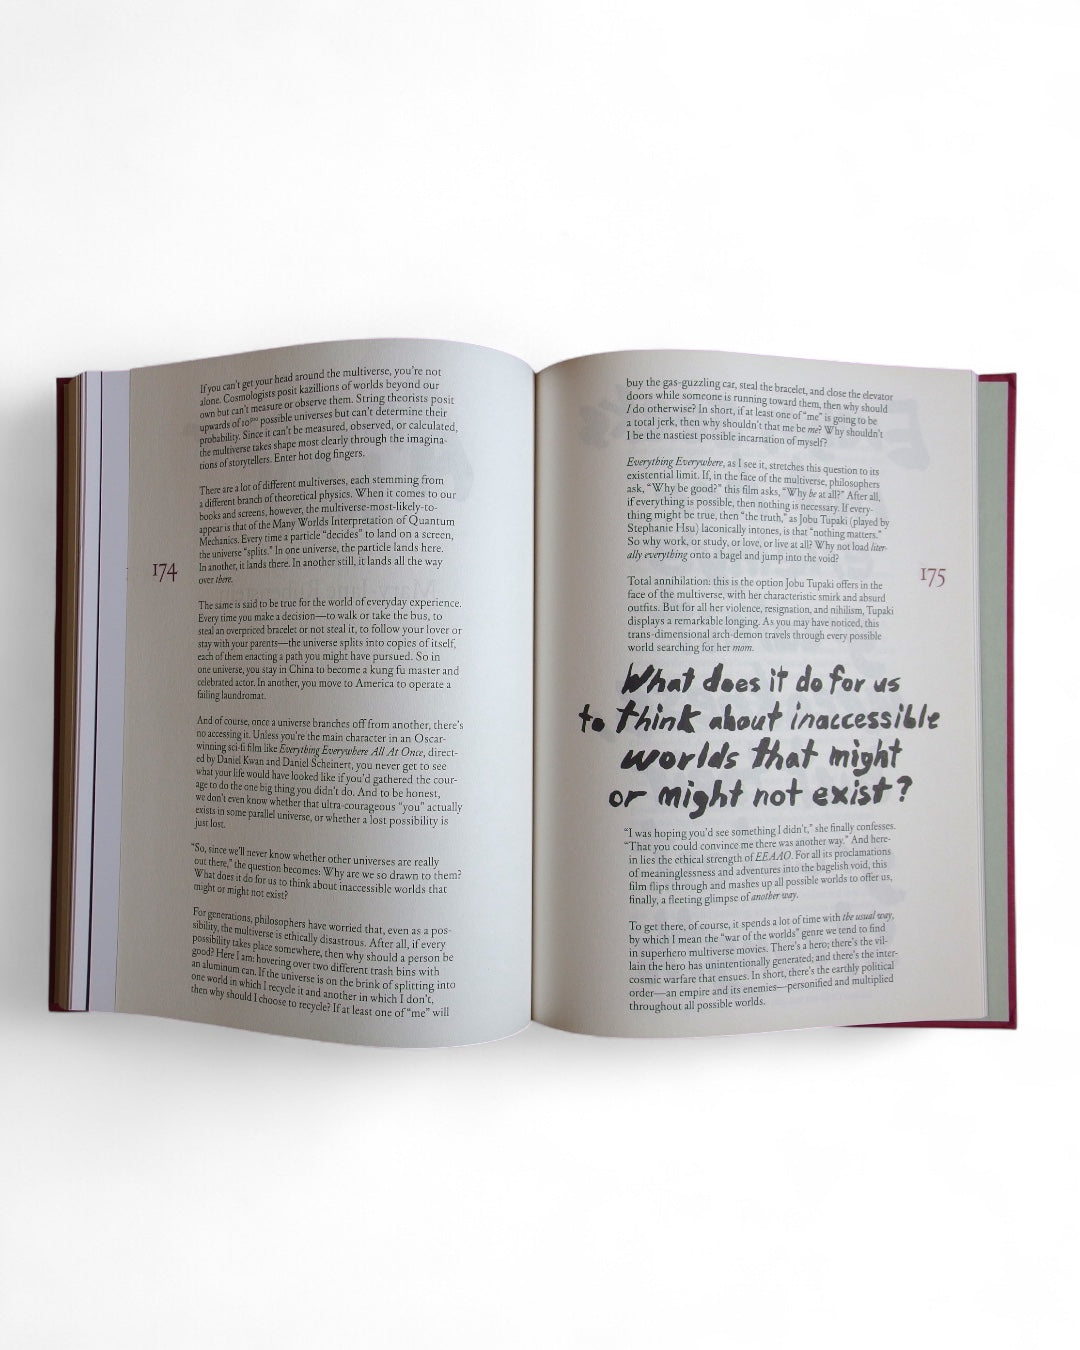 If you can't get your head around the multiverse, you're not
alone. Cosmologists posit kazillions of worlds beyond our
own but can't measure or observe them. String theorists posit
upwards of 10⁵⁰⁰ possible universes but can't determine their
probability. Since it can't be measured, observed, or calculated,
the multiverse takes shape most clearly through the imagina-
tions of storytellers. Enter hot dog fingers.
There are a lot of different multiverses, each stemming from
a different branch of theoretical physics. When it comes to our
books and screens, however, the multiverse-most-likely-to-
appear is that of the Many Worlds Interpretation of Quantum
Mechanics. Every time a particle “decides” to land on a screen,
the universe “splits.” In one universe, the particle lands here.
In another, it lands there. In another still, it lands all the way
over there.
174
The same is said to be true for the world of everyday experience.
Every time you make a decision—to walk or take the bus, to
steal an overpriced bracelet or not steal it, to follow your lover or
stay with your parents—the universe splits into copies of itself,
each of them enacting a path you might have pursued. So in
one universe, you stay in China to become a kung fu master and
celebrated actor. In another, you move to America to operate a
failing laundromat.
And of course, once a universe branches off from another, there's
no accessing it. Unless you're the main character in an Oscar-
winning sci-fi film like Everything Everywhere All At Once, direct-
ed by Daniel Kwan and Daniel Scheinert, you never get to see
what your life would have looked like if you'd gathered the cour-
age to do the one big thing you didn't do. And to be honest,
we don't even know whether that ultra-courageous “you” actually
exists in some parallel universe, or whether a lost possibility is
just lost.
“So, since we'll never know whether other universes are really
out there,” the question becomes: Why are we so drawn to them?
What does it do for us to think about inaccessible worlds that
might or might not exist?
For generations, philosophers have worried that, even as a pos-
sibility, the multiverse is ethically disastrous. After all, if every
possibility takes place somewhere, then why should a person be
good? Here I am: hovering over two different trash bins with
an aluminum can. If the universe is on the brink of splitting into
one world in which I recycle it and another in which I don't,
then why should I choose to recycle? If at least one of “me” will
buy the gas-guzzling car, steal the bracelet, and close the elevator
doors while someone is running toward them, then why should
I do otherwise? In short, if at least one of “me” is going to be
a total jerk, then why shouldn't that me be me? Why shouldn't
I be the nastiest possible incarnation of myself?
Everything Everywhere, as I see it, stretches this question to its
existential limit. If, in the face of the multiverse, philosophers
ask, “Why be good?” this film asks, “Why be at all?” After all,
if everything is possible, then nothing is necessary. If every-
thing might be true, then “the truth,” as Jobu Tupaki (played by
Stephanie Hsu) laconically intones, is that “nothing matters.”
So why work, or study, or love, or live at all? Why not load liter-
ally everything onto a bagel and jump into the void?
175
Total annihilation: this is the option Jobu Tupaki offers in the
face of the multiverse, with her characteristic smirk and absurd
outfits. But for all her violence, resignation, and nihilism, Tupaki
displays a remarkable longing. As you may have noticed, this
trans-dimensional arch-demon travels through every possible
world searching for her mom.
What does it do for us
to think about inaccessible
worlds that might
or might not exist?
“I was hoping you'd see something I didn't,” she finally confesses.
“That you could convince me there was another way.” And here-
in lies the ethical strength of EEAAO. For all its proclamations
of meaninglessness and adventures into the bagelish void, this
film flips through and mashes up all possible worlds to offer us,
finally, a fleeting glimpse of another way.
To get there, of course, it spends a lot of time with the usual way,
by which I mean the “war of the worlds” genre we tend to find
in superhero multiverse movies. There's a hero; there's the vil-
lain the hero has unintentionally generated; and there's the inter-
cosmic warfare that ensues. In short, there's the earthly political
order—an empire and its enemies—personified and multiplied
throughout all possible worlds.